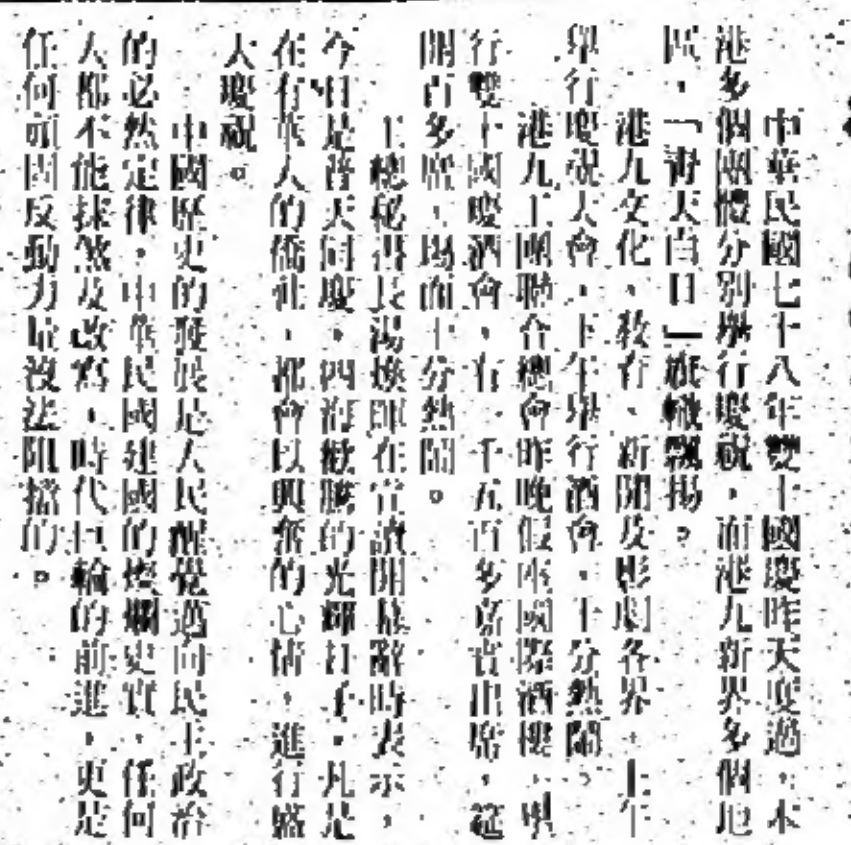 中華民國七十八年雙十國慶昨天度過，本
港多個團體分別舉行慶祝，而港九新界多個地
區，「青天白日」旗幟飄揚。
港九文化、教育、新聞及影劇各界，上午
舉行慶祝大會，下午舉行酒會，十分熱鬧。
港九工團聯合總會昨晚假座國際酒樓，舉
行雙十國慶酒會，有一千五百多嘉賓出席，筵
開百多席，場面十分熱鬧。
主總秘書長湯煥暉在宣讀開幕辭時表示，
今日是普天同慶，四海歡騰的光輝日子，凡是
在有華人的僑社，都會以興奮的心情，進行盛
大慶祝。
中國歷史的發展是人民醒覺邁向民主政治
的必然定律，中華民國建國的燦爛史實，任何
人都不能抹煞及改寫，時代巨輪的前進，更是
任何頑固反動力量沒法阻擋的。